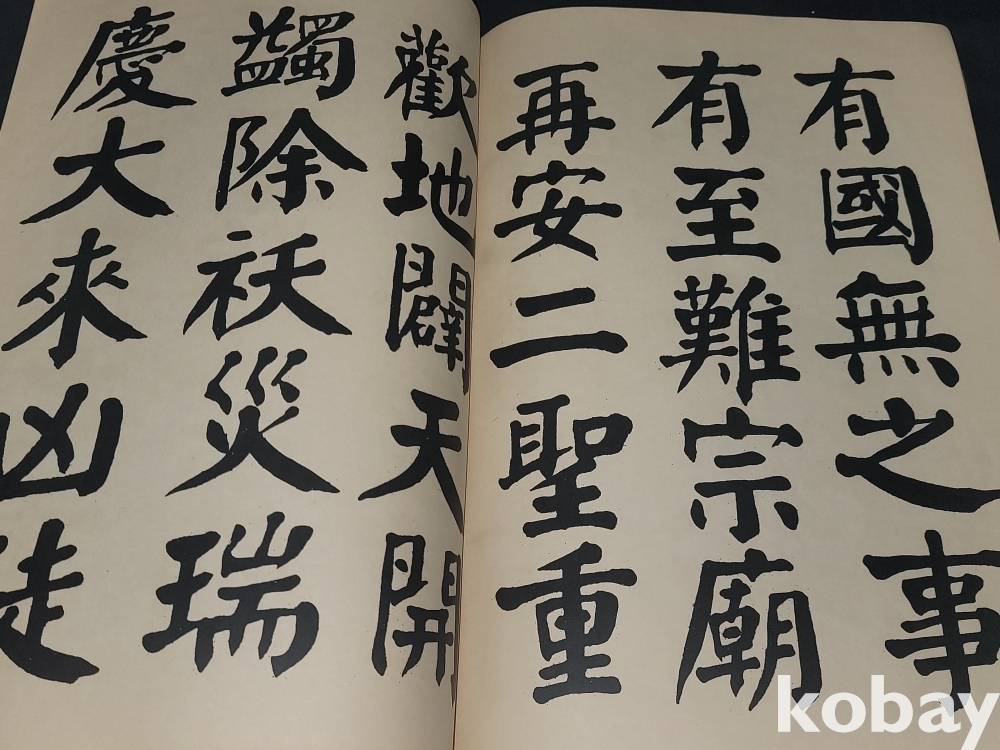 有國無之事
有至難宗廟
再安二聖重
歡地闢天開
蠲除祅災瑞
慶大來凶徒
kobay